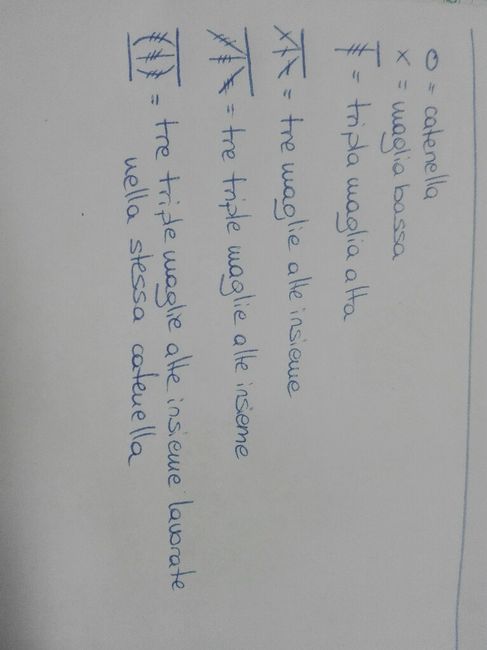 o = catenella
x = maglia bassa
= tripla maglia alta
= tre maglie alte insieme
= tre triple maglie alte insieme
= tre triple maglie alte insieme lavorate
nella stessa catenella